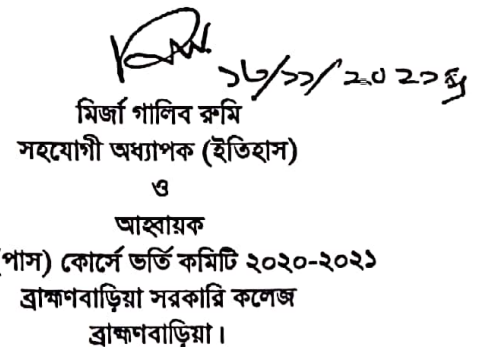 ১৮/১১/২০২১ খ্রি
মির্জা গালিব রুমি
সহযোগী অধ্যাপক (ইতিহাস)
ও
আহ্বায়ক
(পাস) কোর্সে ভর্তি কমিটি ২০২০-২০২১
ব্রাহ্মণবাড়িয়া সরকারি কলেজ
ব্রাহ্মণবাড়িয়া।